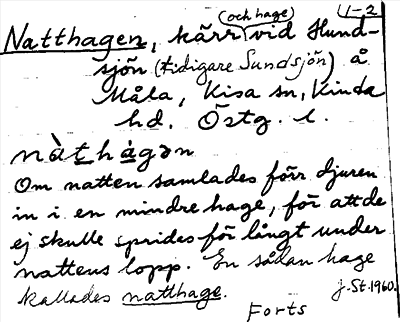 (och hage) 1-2
Natthagen, kärr vid Hund-
sjön (tidigare Sundsjön) å
Måla, Kisa sn, Kinda
hd. Östg. l.
nàthágən
Om natten samlades förr djuren
in i en mindre hage, för att de
ej skulle sprides för långt under
nattens lopp. En sådan hage
kallades natthage. J. St. 1960.
Forts